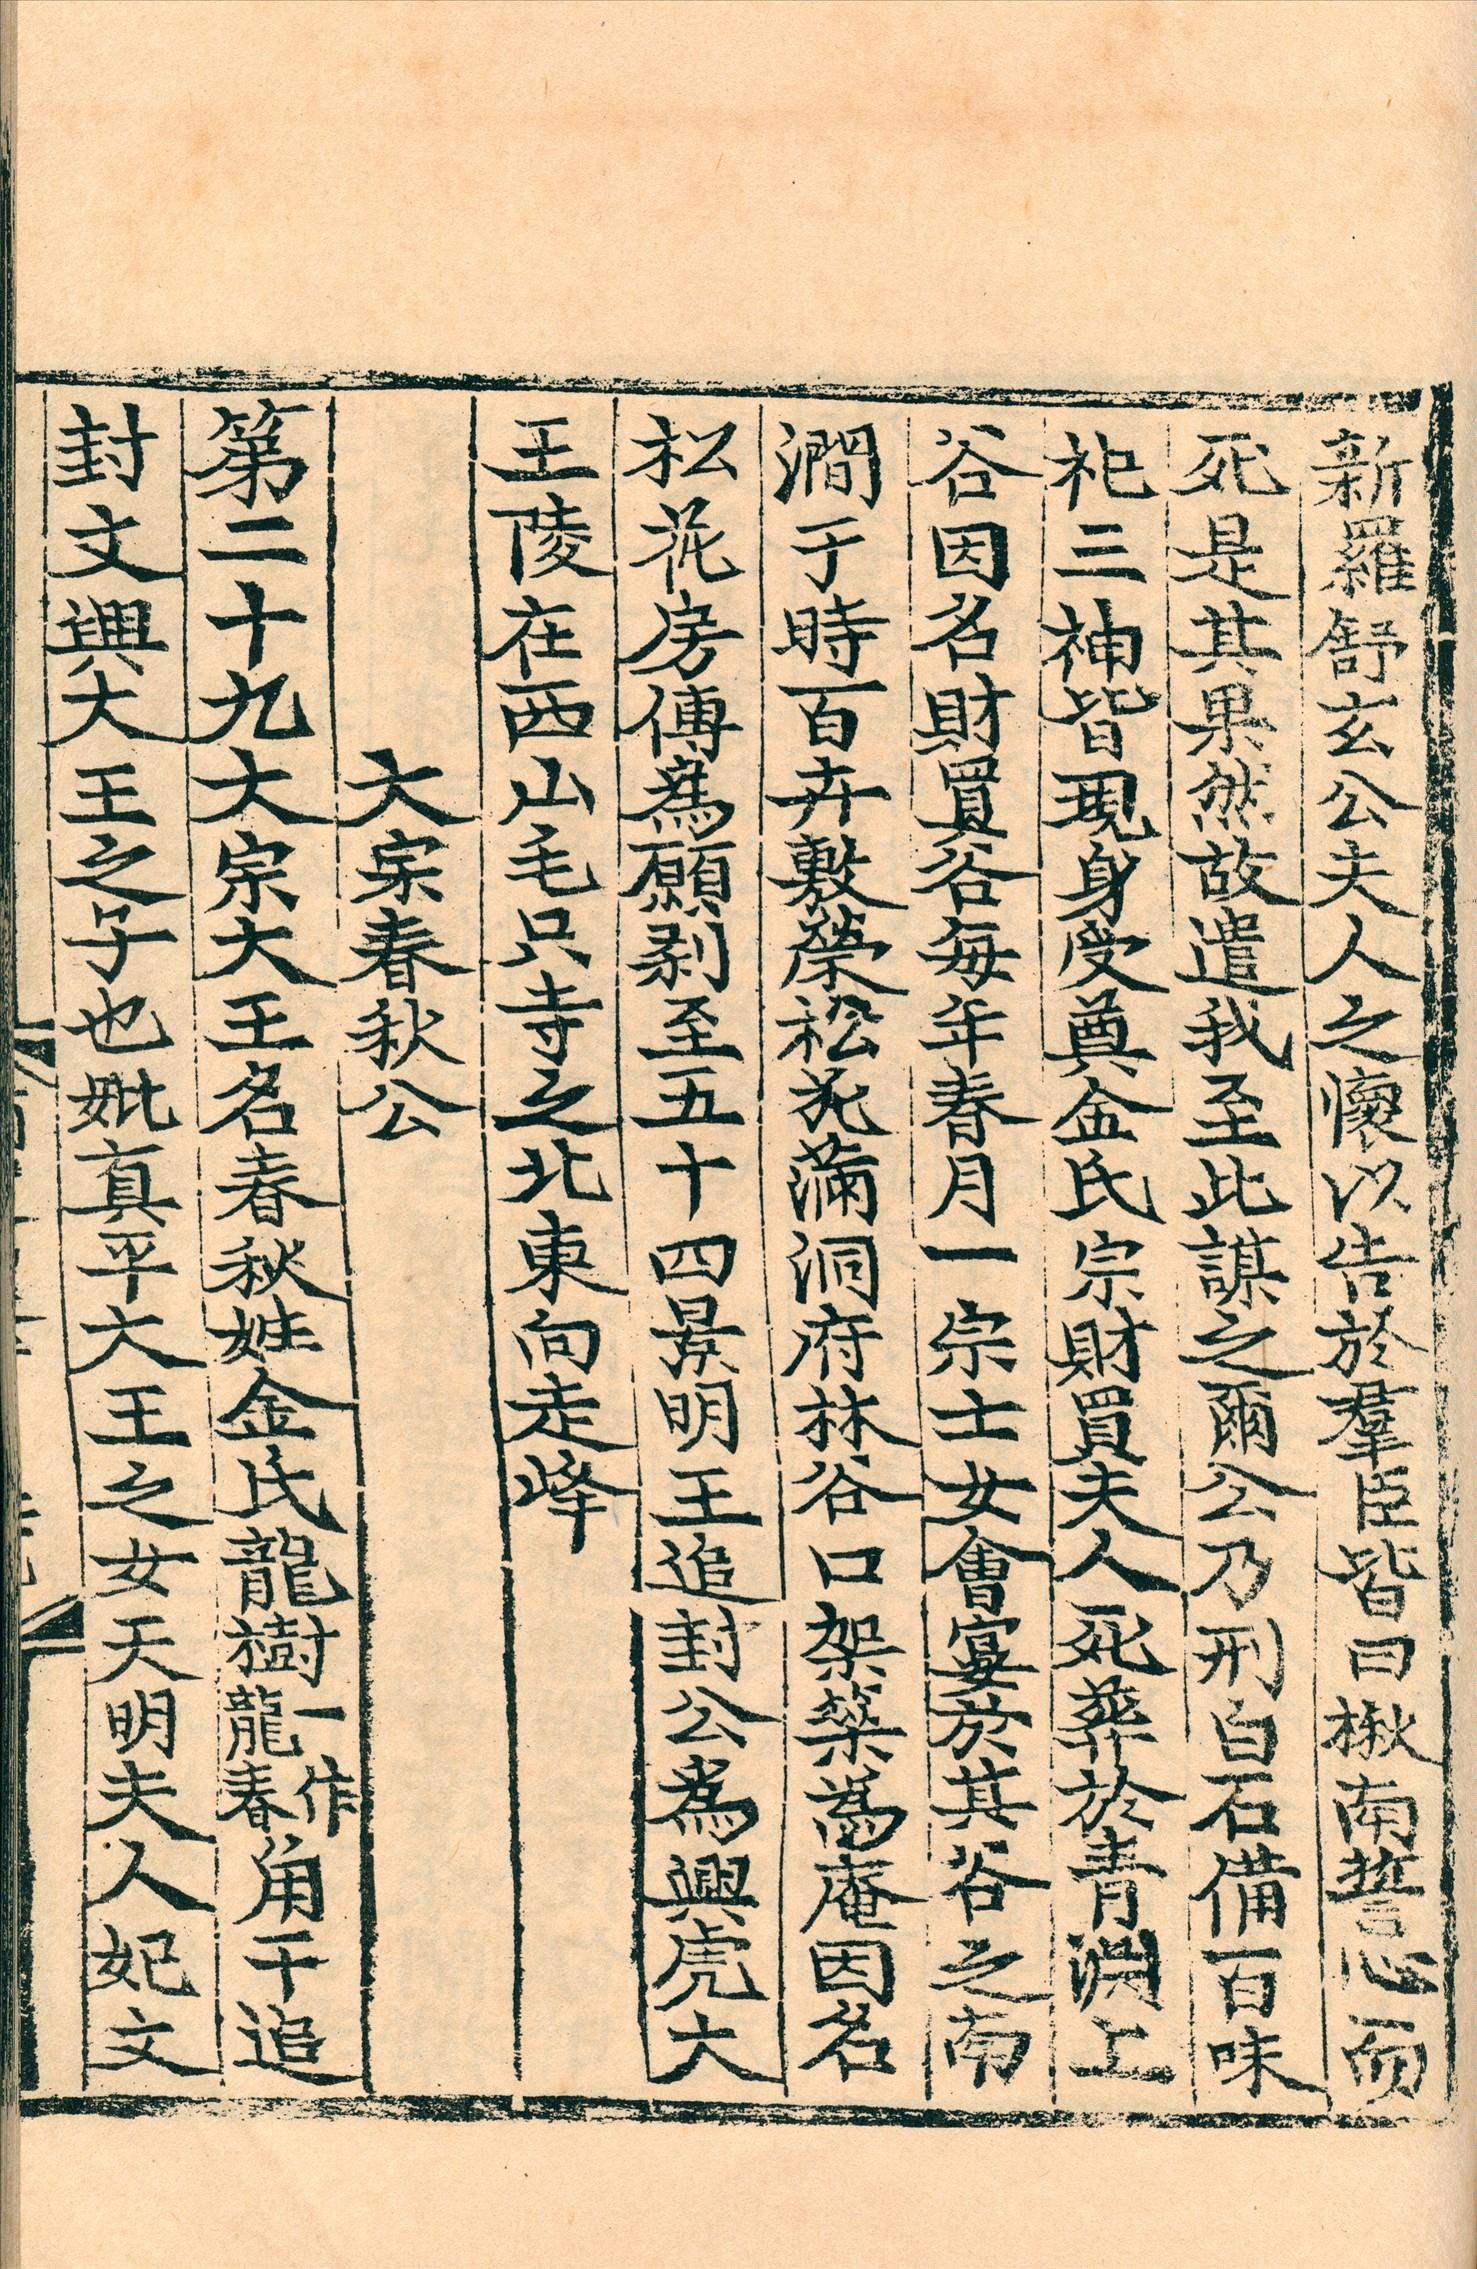 新羅舒玄公夫人之懷以告於羣臣皆曰楸南誓心而
死是其果然故遣我至此謀之爾公乃刑白石備百味
祀三神皆現身受奠金氏宗財買夫人死葬於青淵上
谷因名財買谷每年春月一宗士女會宴於其谷之南
澗于時百卉敷榮松花滿洞府林谷口架築爲庵因名
松花房傳爲願剎至五十四景明王追封公爲興虎大
王陵在西山毛只寺之北東向走峰
大宗春秋公
第二十九大宗大王名春秋姓金氏龍樹一作龍春角干追
封文興大王之子也妣真平大王之女天明夫人妃文